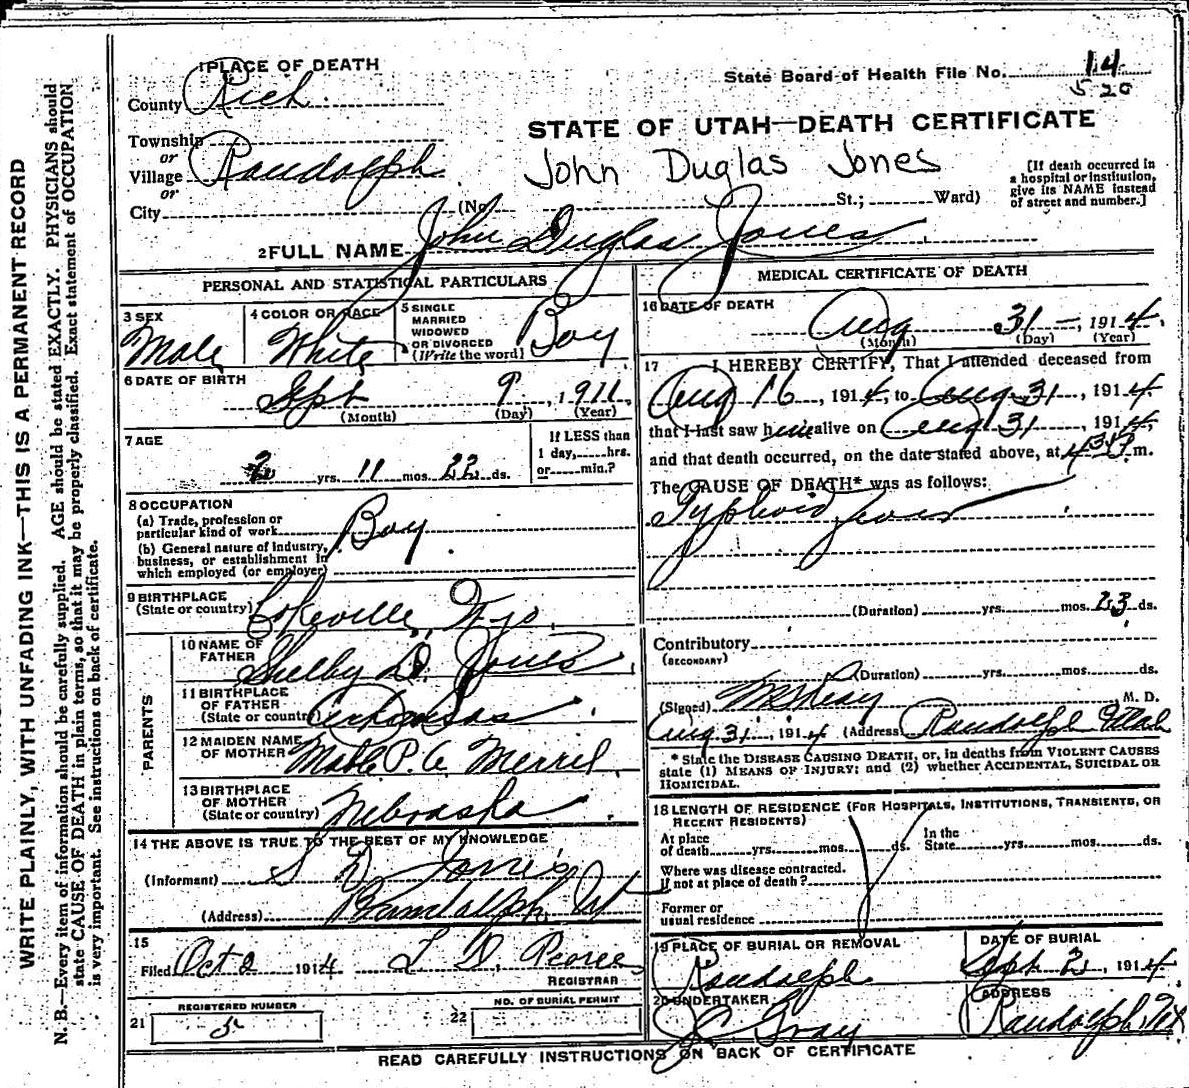 WRITE PLAINLY, WITH UNFADING INK—THIS IS A PERMANENT RECORD
N. B.—Every item of information should be carefully supplied. AGE should be stated EXACTLY. PHYSICIANS should
state CAUSE OF DEATH in plain terms, so that it may be properly classified. Exact statement of OCCUPATION
is very important. See instructions on back of certificate.
1 PLACE OF DEATH
State Board of Health File No. 14
5 20
County Rich
STATE OF UTAH—DEATH CERTIFICATE
Township
or
Village Randolph
or
City (No. St.; Ward)
John Duglas Jones
[If death occurred in
a hospital or institution,
give its NAME instead
of street and number.]
2 FULL NAME John Duglas Jones
PERSONAL AND STATISTICAL PARTICULARS
3 SEX
Male
4 COLOR OR RACE
White
5 SINGLE
MARRIED
WIDOWED
OR DIVORCED
(Write the word) Boy
6 DATE OF BIRTH
Sept 9, 1911
(Month) (Day) (Year)
7 AGE
2 yrs. 11 mos. 22 ds.
If LESS than
1 day, hrs.
or min.?
8 OCCUPATION
(a) Trade, profession or
particular kind of work Boy
(b) General nature of industry,
business, or establishment in
which employed (or employer)
9 BIRTHPLACE
(State or country) Cokeville, Wyo.
PARENTS
10 NAME OF
FATHER Shelby D. Jones
11 BIRTHPLACE
OF FATHER
(State or country) Arkansas
12 MAIDEN NAME
OF MOTHER Mable P. Merril
13 BIRTHPLACE
OF MOTHER
(State or country) Nebraska
14 THE ABOVE IS TRUE TO THE BEST OF MY KNOWLEDGE
(Informant) S D Jones
(Address) Randolph, Ut
15
Filed Oct 2 1914 Pearce
REGISTRAR
REGISTERED NUMBER
21 5
NO. OF BURIAL PERMIT
22
MEDICAL CERTIFICATE OF DEATH
16 DATE OF DEATH
Aug 31—, 1914.
(Month) (Day) (Year)
17 I HEREBY CERTIFY, That I attended deceased from
Aug 16, 1914, to Aug 31, 1914,
that I last saw him alive on Aug 31, 1914,
and that death occurred, on the date stated above, at 4 m.
The CAUSE OF DEATH* was as follows:
Typhoid fever
(Duration) yrs. mos. 23 ds.
Contributory
(SECONDARY)
(Duration) yrs. mos. ds.
(Signed) M. D.
Aug 31, 1914 (Address) Randolph Utah
* State the DISEASE CAUSING DEATH, or, in deaths from VIOLENT CAUSES
state (1) MEANS OF INJURY; and (2) whether ACCIDENTAL, SUICIDAL OR
HOMICIDAL.
18 LENGTH OF RESIDENCE (FOR HOSPITALS, INSTITUTIONS, TRANSIENTS, OR
RECENT RESIDENTS)
At place
of death yrs. mos. ds.
In the
State yrs. mos. ds.
Where was disease contracted.
if not at place of death?
Former or
usual residence
19 PLACE OF BURIAL OR REMOVAL
Randolph
DATE OF BURIAL
Sept. 2, 1914
20 UNDERTAKER
J C Gray
ADDRESS
Randolph, Ut
READ CAREFULLY INSTRUCTIONS ON BACK OF CERTIFICATE